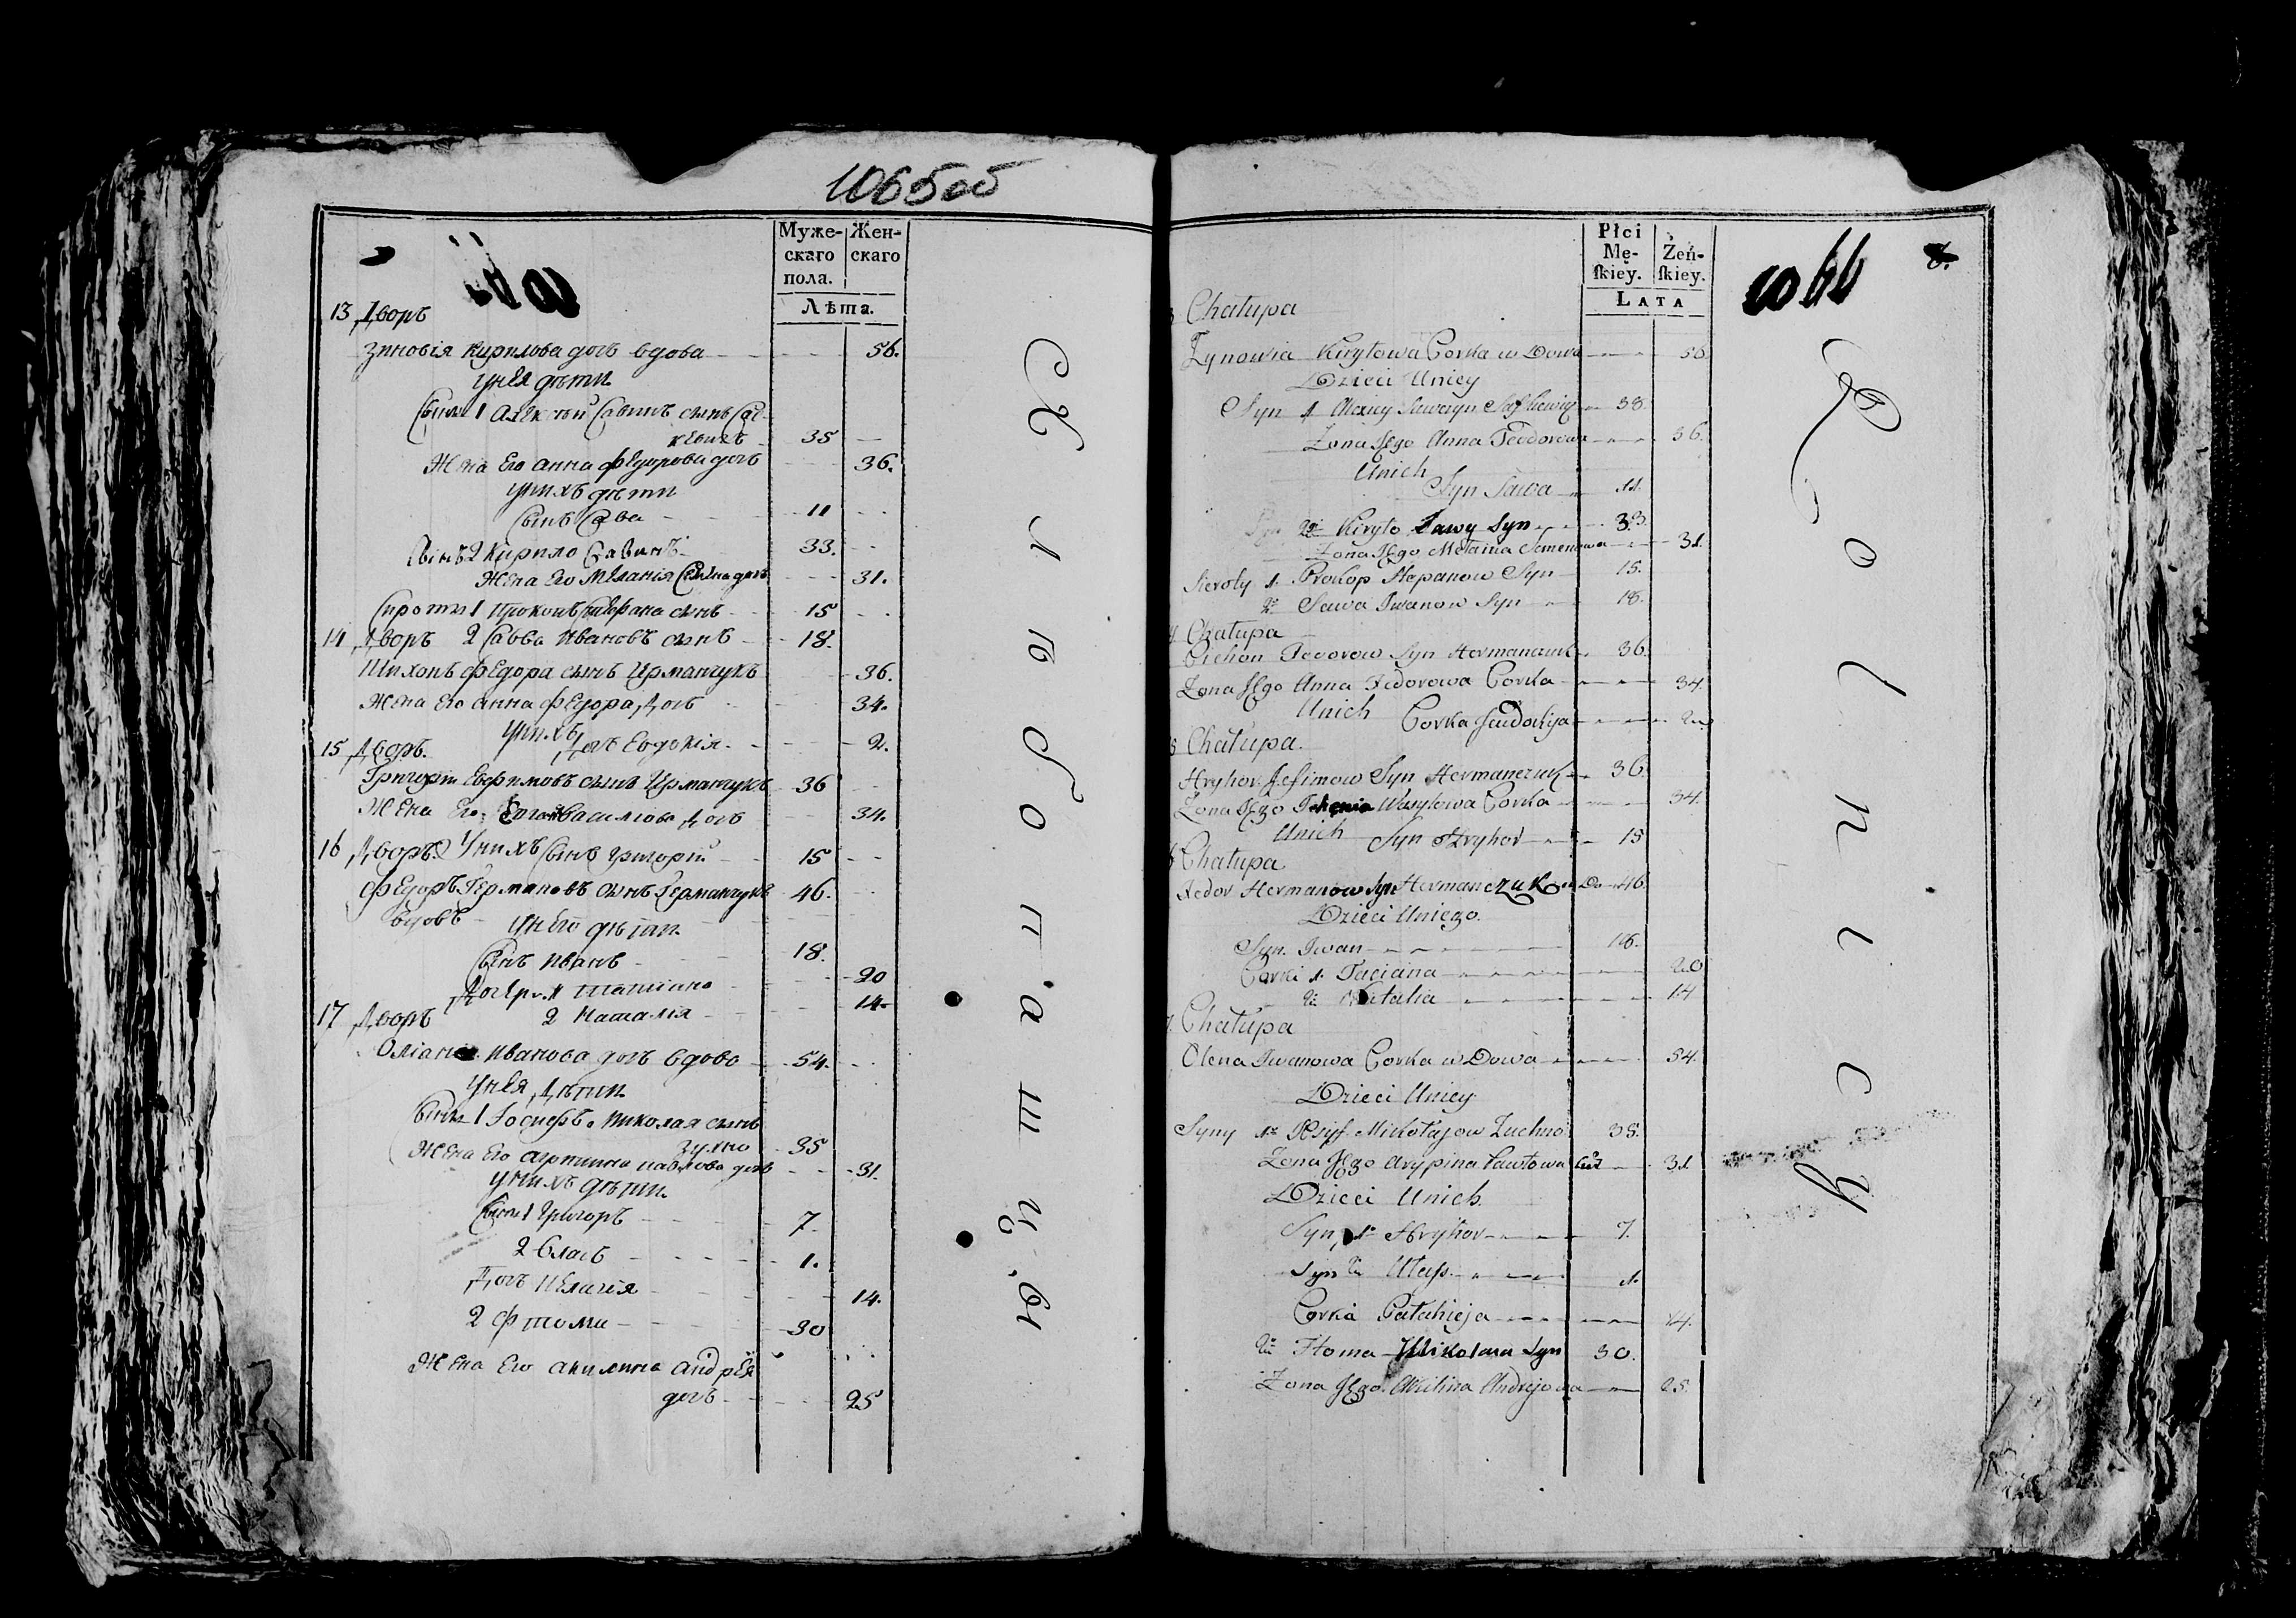 1065об
Муже-
скаго
пола.
Жен-
скаго
Лѣта.
13 Дворъ
Зиновія Кирилова дочь вдова 56.
У нея дѣти
Сынъ 1 Алексѣй Савинъ сынъ
35
Жена Его Анна Федорова дочь 36.
У нихъ дѣти
Сынъ Сава 11
Сынъ 2 Кирило Савинъ 33.
Жена Его Меланія дочь 31.
Сироты 1 Прокопъ Стефана сынъ 15
14 Дворъ 2 Савва Ивановъ сынъ 18.
Тихонъ Федора сынъ Ирманчукъ 36.
Жена Его Анна Федора дочь 34.
У нихъ
15 Дворъ. дочь Евдокія 2.
Григорій Евфимовъ сынъ Ирманчукъ 36
Жена Его Василева дочь 34.
16 Дворъ У нихъ Сынъ Григорій 15
Федоръ Германовъ сынъ Германчукъ 46.
вдовъ У него дѣти
Сынъ Иванъ 18.
Дочери 1 Татіана 20
17 Дворъ 2 Наталія 14.
Иванова дочь вдова 54.
У нея дѣти
Сыны 1 Іосифъ Николая сынъ
Зухно 35
Жена Его Агрипина Павлова дочь 31.
У нихъ дѣти
Сыны 1 Григоръ 7
2 Власъ 1.
Дочь Пелагія 14.
2 Фтома 30
Жена Его Акилина Андрея
дочь 25
Хлѣбопашцы
Płci
Mę-
ſkiey.
Żeń-
ſkiey.
Lata
Chałupa
Zynowia Kiryłowa Corka w Dowa 56
Dzieci Uniey
Syn 1 Alexiey Sawczyn 38.
Zona Jego Anna Teodorowa 36.
Unich
Syn Sawa 11.
Syn 2 Kiryło Sawy Syn 33
Zona Jego Mełania Semenowa 31.
Sieroty 1. Prokop Stepanow Syn 15.
2 Sawa Iwanow Syn 18.
Chałupa
Cichon Teodorow Syn Hermanczuk 36.
Zona Jego Anna Fedorowa Corka 34.
Unich Corka Jeudokija 2
Chałupa.
Hryhor Jefimow Syn Hermanczuk 36.
Zona Jego Wasylowa Corka 34.
Unich Syn Hryhor 15
Chałupa
Fedor Hermanow Syn Hermanczuk w Do 46.
Dzieci Uniego.
Syn. Iwan 18.
Corki 1. Taciana 20
2 Natalia 14
Chałupa
Olena Iwanowa Corka w Dowa 54.
Dzieci Uniey
Syny 1 Osyf Mikołajow Zuchno 38.
Zona Jego Arypina Pawłowa 31
Dzieci Unich.
Syn, 1 Hryhor 7.
Syn 2 Ułas 1.
Corka Pałahieja 14.
2 Homa Syn 30.
Zona Jego Akilina Andrejowa 25.
Rolnicy